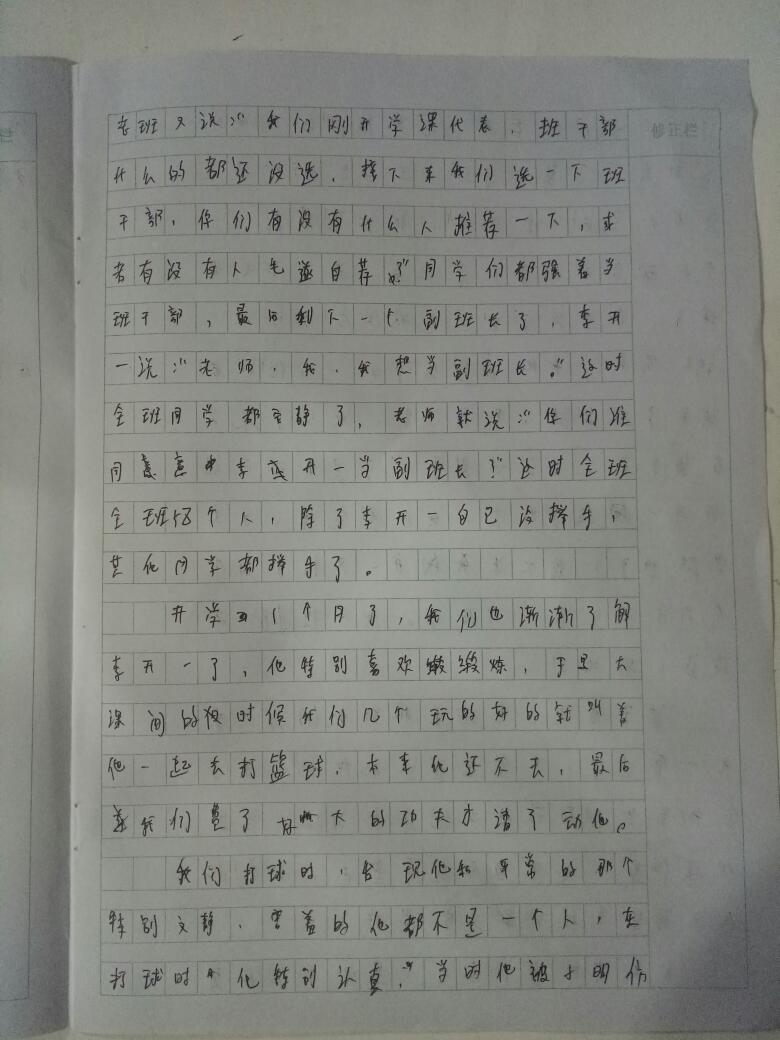 修正栏
老班又说:“我们刚开学课代表、班干部
什么的都还没选,接下来我们选一下班
干部,你们有没有什么人推荐一下,或
者有没有人毛遂自荐?”同学们都强着当
班干部,最后剩下一个副班长了,李开
一说:“老师,我,我想当副班长。”这时
全班同学都安静了,老师就说:“你们谁
同意李开一当副班长?”这时全班
全班58个人,除了李开一自己没举手,
其他同学都举手了。
开学1个月了,我们也渐渐了解
李开一了,他特别喜欢锻炼,于是大
课间的时候我们几个玩的好的就叫着
他一起去打篮球,本来他还不去,最后
我们费了好大的功夫才请了动他。
我们打球时,发现他和平常的那个
特别文静、害羞的他都不是一个人,在
打球时他特别认真,当时他被小明